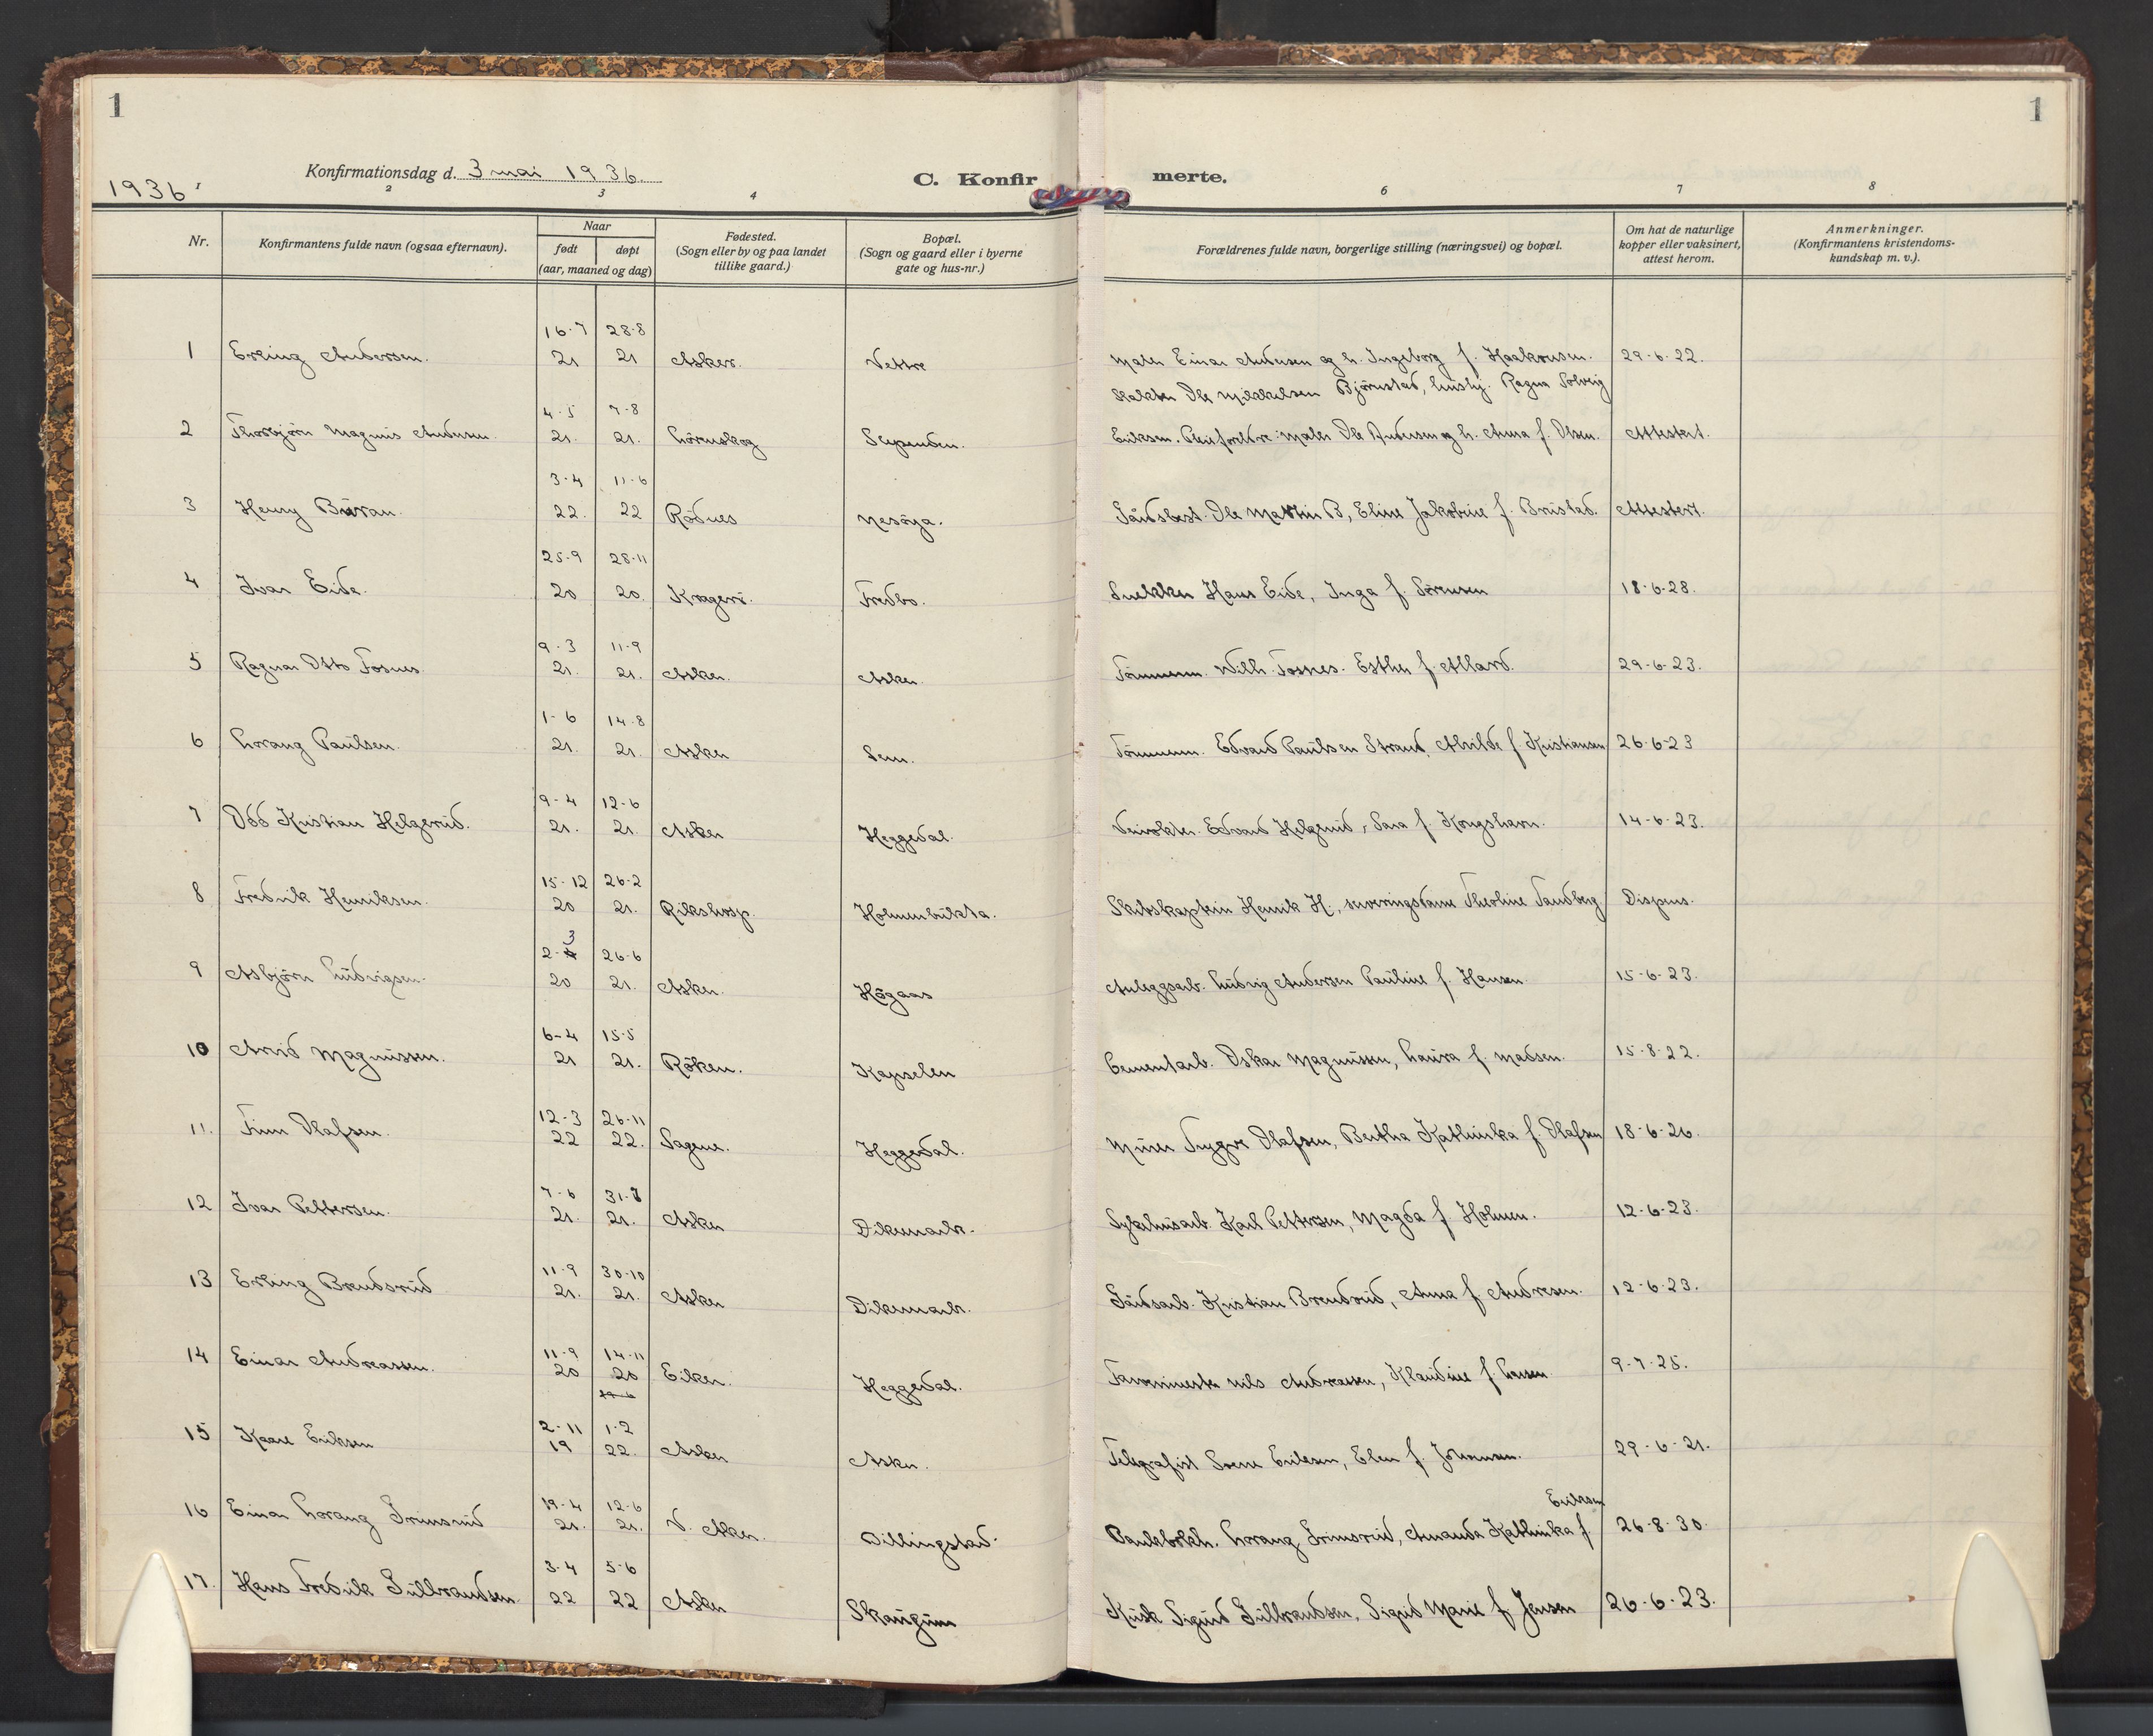 1
1
1936
Konfirmationsdag d. 3 mai 1936.
C. Konfirmerte.
2 3 4 6 7 8
Nr.
Konfirmantens fulde navn (ogsaa efternavn).
Naar
født døpt
(aar, maaned og dag)
Fødested.
(Sogn eller by og paa landet
tillike gaard.)
Bopæl.
(Sogn og gaard eller i byerne
gate og hus-nr.)
Forældrenes fulde navn, borgerlige stilling (næringsvei) og bopæl.
Om hat de naturlige
kopper eller vaksinert,
attest herom.
Anmerkninger.
(Konfirmantens kristendoms-
kundskap m. v.).
16-7 28-8
1 Erling Andersen. 21 21 Asker. Vettre Maler Einar Andersen og h. Ingeborg f. Haakonsen. 29-6-22.
Ole Mikkelsen Bjørnstad, hushj. Ragna Solveig
4-5 7-8
2 Thorbjørn Magnus Andersen. 21. 21. Lørenskog Eriksen. Pleiforeldre: Maler Ole Andersen og h. Anna f. Olsen. Attestert.
3-4 11-6
3 Henry Buran. 22. 22 Rødnes Nesøya. Gårdsbest. Ole Martin B, Eline Jakobine f. Attestert.
25-9 28-11
4 Ivar Eide. 20 20. Kragerø. Fredbo. Snekker Hans Eide, Inga f. Sørensen 18-6-28.
9-3 11-9
5 Ragnar Otto Fosnes. 21. 21. Asker. Asker. Tømmerm. Wilh. Fosnes. Esther f. Allard. 29-6-23.
1-6 14-8
6 Lorang Paulsen. 21. 21. Asker Sem. Tømmerm. Edvard Paulsen Strand, Alvilde f. Kristiansen 26-6-23
9-4 12-6
7 Odd Kristian Helgerud. 21. 21. Asker Heggedal. Veivokter. Edvard Helgerud, Sara f. Kongshavn. 14-6-23.
15-12 26-2
8 Fredrik Henriksen. 20 21. Rikshosp. Holmenbukta. Skibskaptein Henrik H., Theoline Sandberg Dispens.
3
2-4 26-6
9 Asbjørn Ludvigsen. 20 21. Asker. Høgaas Anleggsarb. Ludvig Andersen Pauline f. Hansen. 15-6-23.
6-4 15-5
10 Arvid Magnussen. 21 21. Røken. Kapselen Cementarb. Oskar Magnussen, Laura f. Madsen. 15-8-22.
12-3 26-11
11. Finn Olafsen. 22 22. Sagene. Heggedal. Murer Trygve Olafsen, Bertha Kathinka f. Olafsen 18-6-26.
7-6 31-7
12 Ivar Pettersen. 21. 21. Asker Dikemark. Sykehusarb. Karl Pettersen, Magda f. Holmen. 12-6-23.
11-9 30-10
13 Erling Brendsrud 21. 21. Asker Dikemark. Gårdsarb. Kristian Brendsrud, Anna f. Andresen. 12-6-23.
11-9 14-11
14 Einar Andreassen. 20 20 Eiker. Heggedal. Farverimester Nils Andreassen, Klaudine f. Larsen 9-7-25.
2-11 1-2
15 Kaare Eriksen 19 22. Asker Asker. Telegrafist Eriksen, Ellen f. Johannsen. 29-6-21.
19-4 12-6 Eriksen
16 Einar Lorang Grimsrud 21. 21. V. Aker. Billingstad. Bankbokh. Lorang Grimsrud, Amanda Kathinka f. 26-8-30.
3-4 5-6
17. Hans Fredrik Gulbrandsen. 22 22 Asker Skaugum Kusk Sigurd Gulbrandsen, Sigrid Marie f. Jensen 26-6-23.